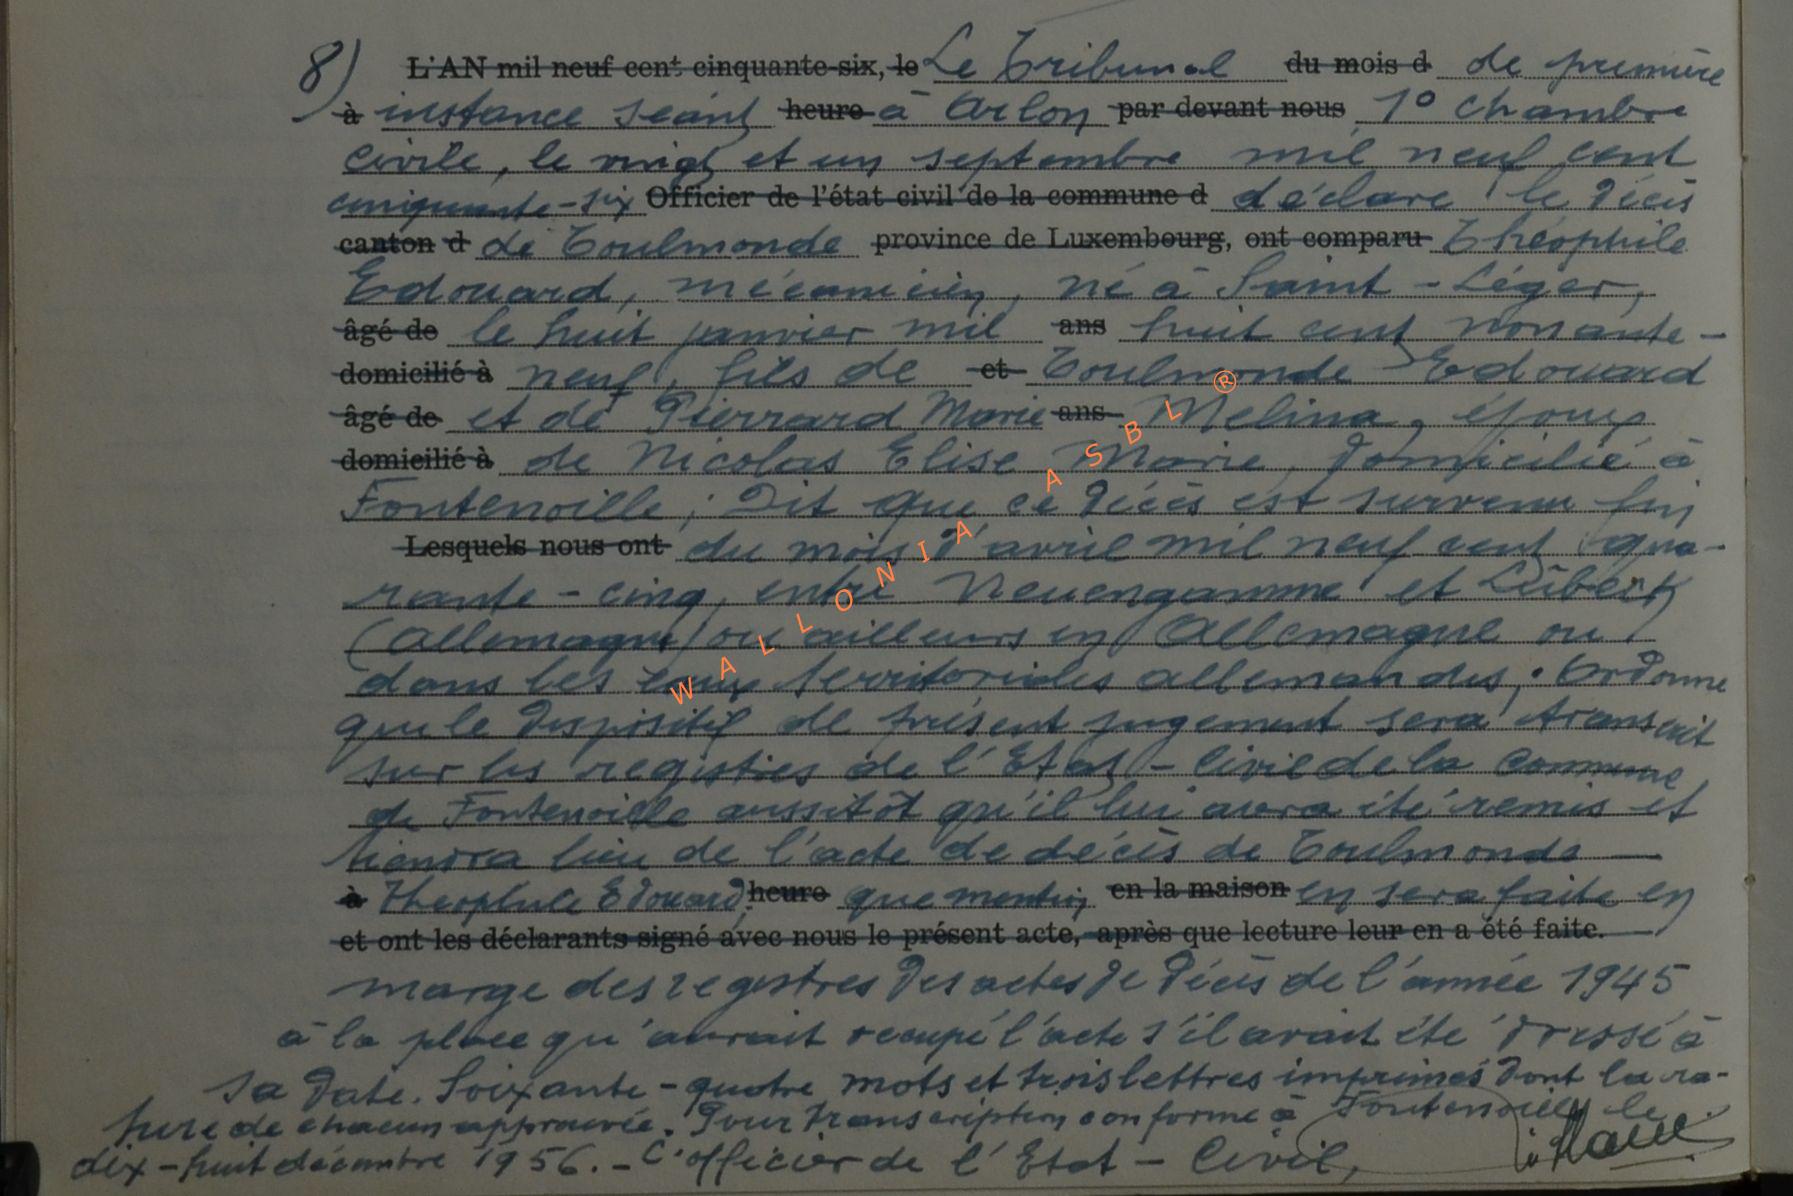 8) L'AN mil neuf cent cinquante-six, le Le Tribunal du mois d de première
à instance séant heure à Arlon par devant nous 1° chambre
civile, le vingt et un septembre mil neuf cent
cinquante-six Officier de l'état civil de la commune d déclare le décès
canton d de Toulmonde province de Luxembourg, ont comparu Théophile
Edouard, mécanicien, né à Saint-Léger,
âgé de le huit janvier mil ans huit cent nonante-
domicilié à neuf, fils de et Toulmonde Edouard
âgé de et de Pierrard Marie ans Melina, époux
domicilié à de Nicolas Elise Marie, domicilié à
Fontenoille; Dit que ce décès est survenu fin
Lesquels nous ont du mois d'avril mil neuf cent qua-
rante-cinq, entre Neuengamme et Lübeck
(Allemagne) ou ailleurs en Allemagne ou
dans les eaux territoriales allemandes; Ordonne
que le dispositif de présent jugement sera transcrit
sur les registres de l'Etat-Civil de la Commune
de Fontenoille aussitôt qu'il lui aura été remis et
tiendra lieu de l'acte de décès de Toulmonde
à Théophile Edouard, heure que mention en la maison en sera faite en
et ont les déclarants signé avec nous le présent acte, après que lecture leur en a été faite.
marge des registres des actes de décès de l'année 1945
à la place qu'aurait occupé l'acte s'il avait été dressé à
sa date. Soixante-quatre mots et trois lettres imprimés dont la ra-
ture de chacun approuvée. Pour transcription conforme à Fontenoille, le
dix-huit décembre 1956.- L'officier de l'Etat-Civil,
WALLONIA ASBL ®